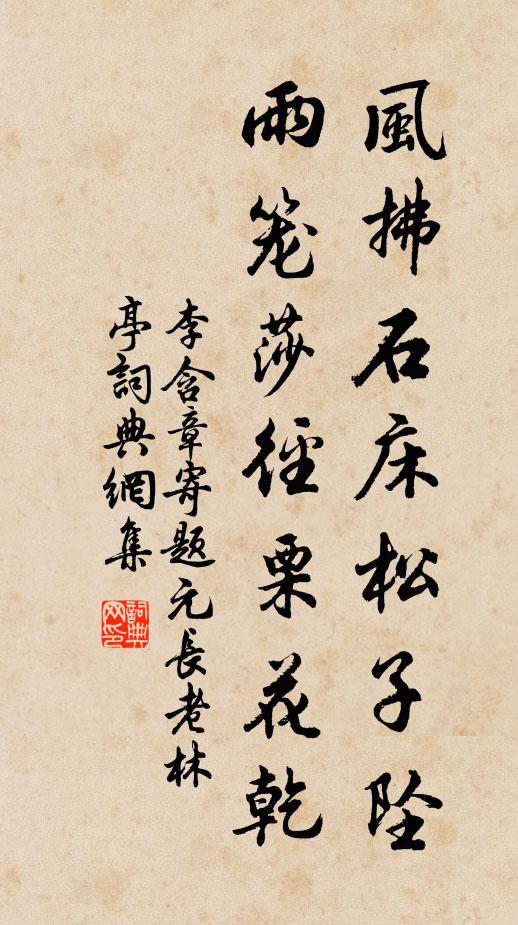 風拂石床松子坠
雨笼莎径栗花乾
李含章寄题元長老林
亭詞典網集
詞典网印